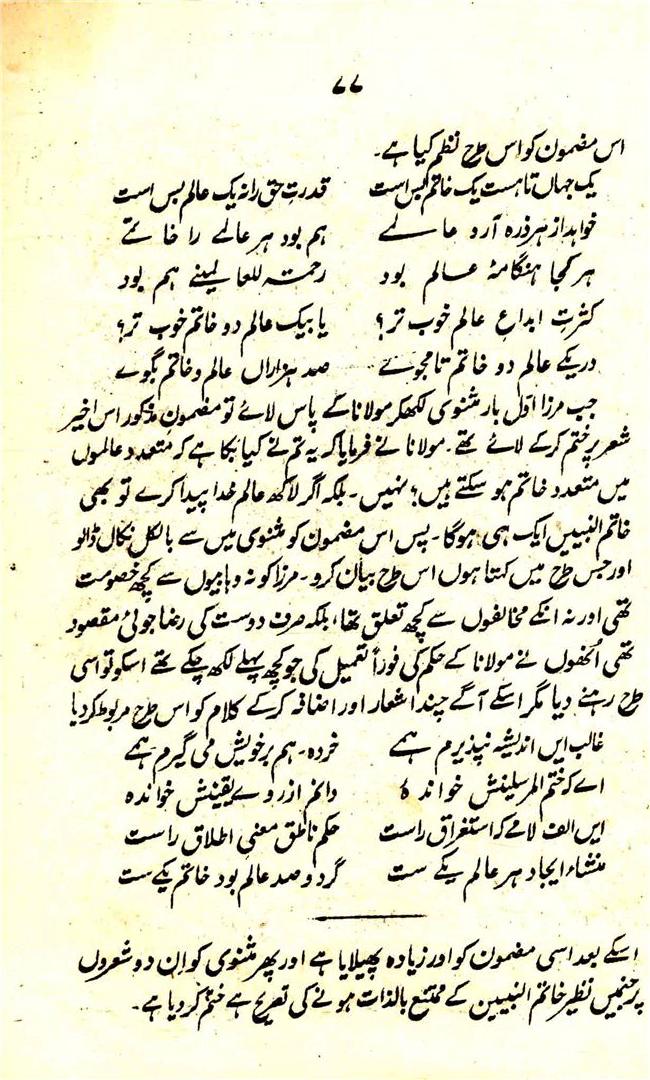 ۷۷
اس مضمون کو اس طرح نظم کیا ہے۔
یک جہاں تا ہست یک خاتم بس است قدرتِ حق را نہ یک عالم بس است
خواہد از ہر ذرہ آرد عالمے ہم بود ہر عالمے را خاتمے
ہر کجا ہنگامۂ عالم بود رحمتہ للعالمینے ہم بود
کثرتِ ابداعِ عالم خوب تر؟ یا بیک عالم دو خاتم خوب تر؟
در یکے عالم دو خاتم تا مجوے صد ہزاراں عالم و خاتم بگوے
جب مرزا اوّل بار مثنوی لکھکر مولانا کے پاس لائے تو مضمون مذکور اس اخیر
شعر پر ختم کر کے لائے تھے۔ مولانا نے فرمایا کہ یہ تم نے کیا بکا ہے کہ متعدد عالموں
میں متعدد خاتم ہو سکتے ہیں؟ نہیں۔ بلکہ اگر لاکھ عالم خدا پیدا کرے تو بھی
خاتم النبیین ایک ہی ہوگا۔ پس اس مضمون کو مثنوی میں سے بالکل نکال ڈالو
اور جس طرح میں کہتا ہوں اس طرح بیان کرو۔ مرزا کو نہ وہابیوں سے کچھ خصومت
تھی اور نہ انکے مخالفوں سے کچھ تعلق تھا، بلکہ صرف دوست کی رضا جوئی مقصود
تھی اُنھوں نے مولانا کے حکم کی فوراً تعمیل کی جو کچھ پہلے لکھ چکے تھے اسکو تو اسی
طرح رہنے دیا مگر اسکے آگے چند اشعار اور اضافہ کر کے کلام کو اس طرح مربوط کر دیا
غالب ایں اندیشہ نپذیرم ہمے خردہ۔ ہم بر خویش می گیرم ہمے
اے کہ ختم المرسلینش خواندۂ دانم از روے یقینش خواندہ
ایں الف لامے کہ استغراق راست حکم ناطق معنیِ اطلاق راست
منشاء ایجاد ہر عالم یکے ست گر دو صد عالم بود خاتم یکے ست
اسکے بعد اسی مضمون کو اور زیادہ پھیلایا ہے اور پھر مثنوی کو ان دو شعروں
پر جنمیں نظیر خاتم النبیین کے ممتنع بالذات ہونے کی تصریح ہے ختم کر دیا ہے۔